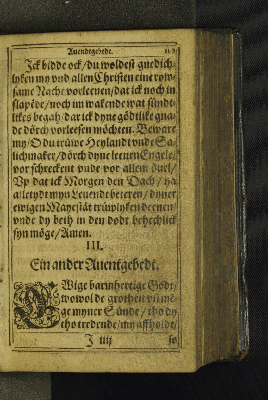 Auentgebedt.
Ick bidde ock / du woldest gnedich-
lyken my vnd allen Christen eine row-
same Nacht vorleenen / dat ick noch in
slapëde / noch im wakende wat sündt-
likes begah / dar ick dyne gödtlike gna-
de dörch vorleesen möchten. Beware
my / O du trüwe Heylandt vnde Sa-
lichmaker / dörch dyne leeuen Engele /
vor schreckent vnde vor allem öuel /
Vp dat ick Morgen den Dach / ya
alletydt myn Leuendt beteren / dyner
ewigen Mayestät trüwlyken deenen /
vnde dy beth in den dodt behechlick
syn möge / Amen.
III.
Ein ander Auentgebedt.
EWige barmhertige Godt /
wowol de grotheit vñ më-
ge myner Sünde / tho dy
tho tredende / my affholdt /
J iiij so